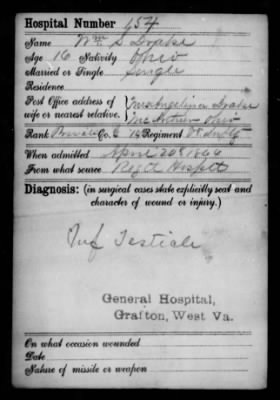 Hospital Number 154
Name Wm S Drake
Age 16 Nativity Ohio
Married or Single Single
Residence
Post Office address of
wife or nearest relative. Mrs Angelina Drake
McArthur Ohio
Rank Private Co. Regiment
When admitted April 20
From what source Hospital
Diagnosis: (in surgical cases state explicitly seat and
character of wound or injury.)
Inf Testicle
General Hospital,
Grafton, West Va.
On what occasion wounded
Date
Nature of missile or weapon